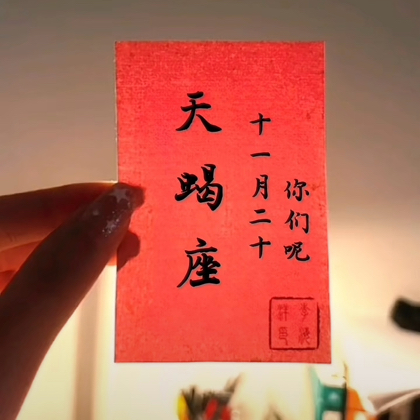 天蝎座
十一月二十
你们呢